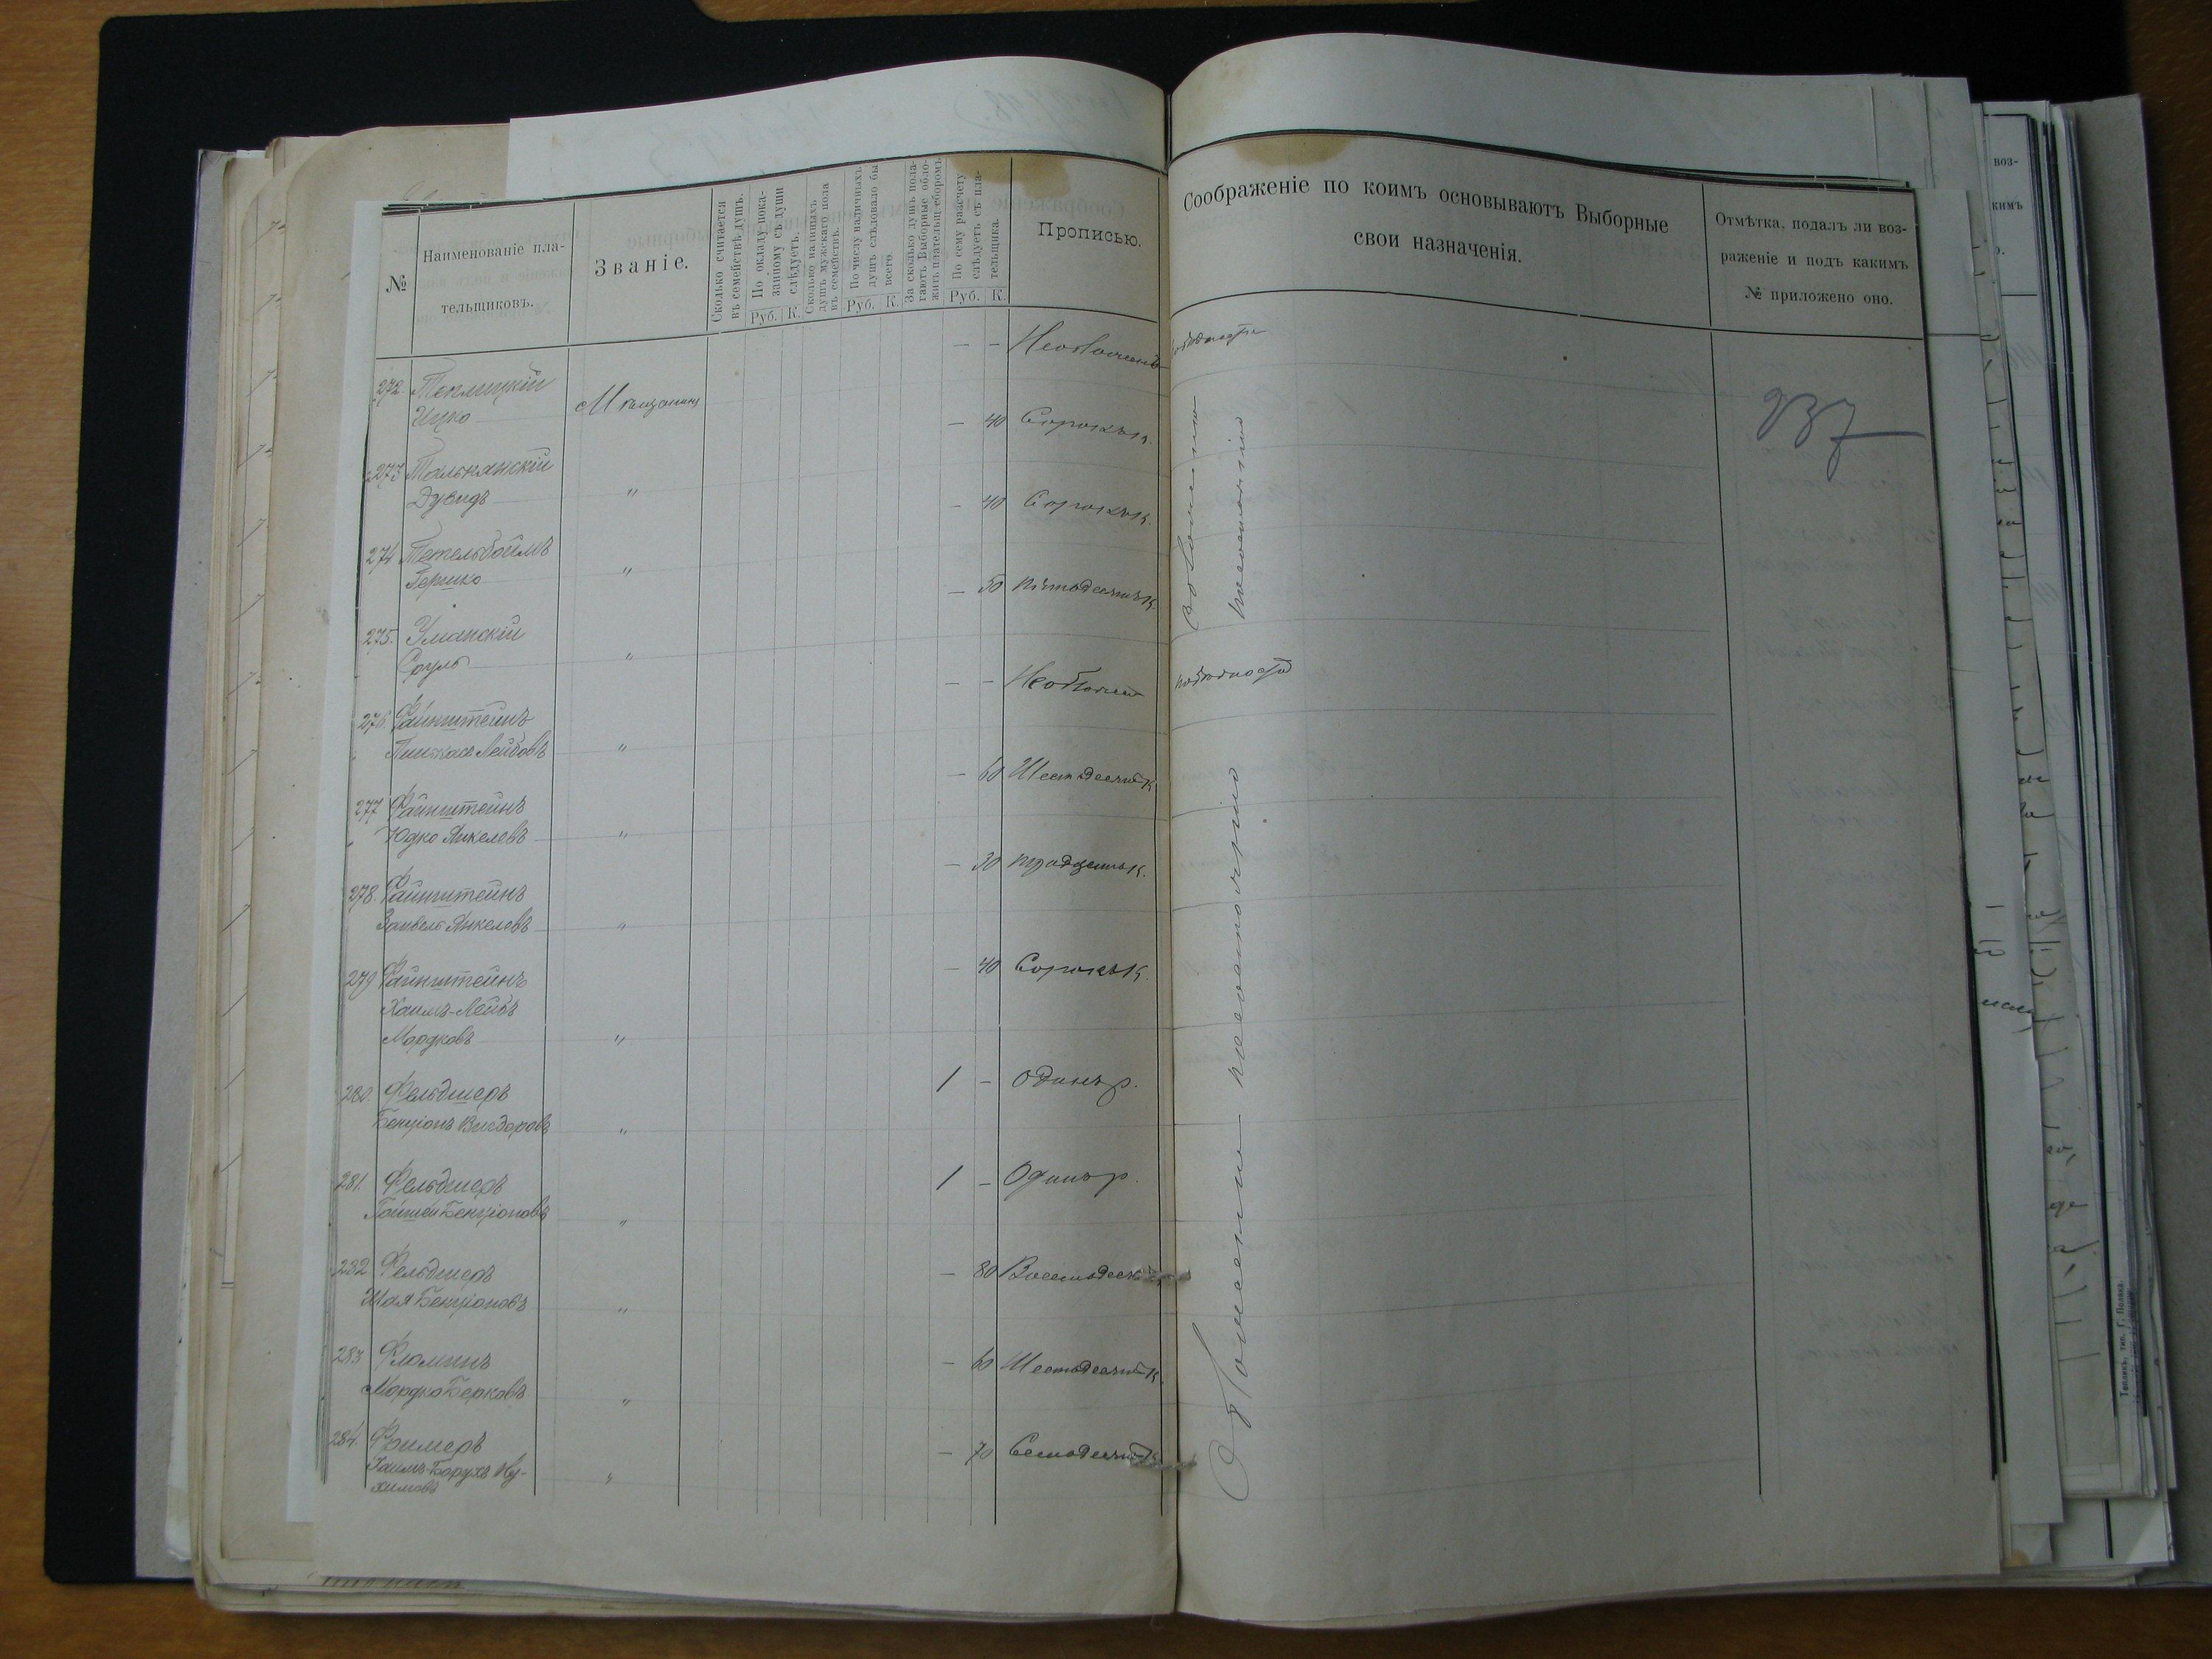 №
Наименованіе пла-
тельщиковъ.
Званіе.
Сколько считается
въ семействѣ душъ.
По окладу пока-
занному съ души
слѣдуетъ.
Руб. К.
Сколько наличныхъ
душъ мужскаго пола
въ семействѣ.
По числу наличныхъ
душъ слѣдовало бы
всего.
Руб. К.
За сколько душъ пола-
гаютъ Выборные обло-
жить плательщ. сборомъ.
По сему разсчету
слѣдуетъ съ пла-
тельщика.
Руб. К.
Прописью.
Соображеніе по коимъ основываютъ Выборные
свои назначенія.
Отмѣтка, подалъ ли воз-
раженіе и подъ какимъ
№ приложено оно.
237
272 Теплицкій
Ицко
Мѣщанинъ
— —
273 Тальнянскій
Дувидъ
"
— 40 Сорокъ к.
274 Тетельбоймъ
Гершко
"
— 40 Сорокъ к.
275. Уманскій
Сруль
"
— 50 Пятьдесятъ к.
276 Файнштейнъ
Пинхас Лейбовъ
"
— —
277 Файнштейнъ
Юдко Янкелевъ
"
— 60 Шестьдесятъ к.
278. Файнштейнъ
Занвель Янкелевъ
"
— 30 Тридцать к.
279 Файнштейнъ
Хаимъ-Лейбъ
Мордковъ
"
— 40 Сорокъ к.
280. Фельдшеръ
Бенціонъ Вигдоровъ
"
1 — Одинъ р.
281. Фельдшеръ
Бенціоновъ
"
1 — Одинъ р.
282 Фельдшеръ
Шая Бенціоновъ
"
— 80
283 Фломинъ
Мордко Берковъ
"
— 60 Шестьдесятъ к.
284. Фримеръ
Хаимъ-Борухъ Ну-
химовъ
"
— 70 Семьдесятъ к.
по бѣдности
по состоянію
по бѣдности
по состоянію